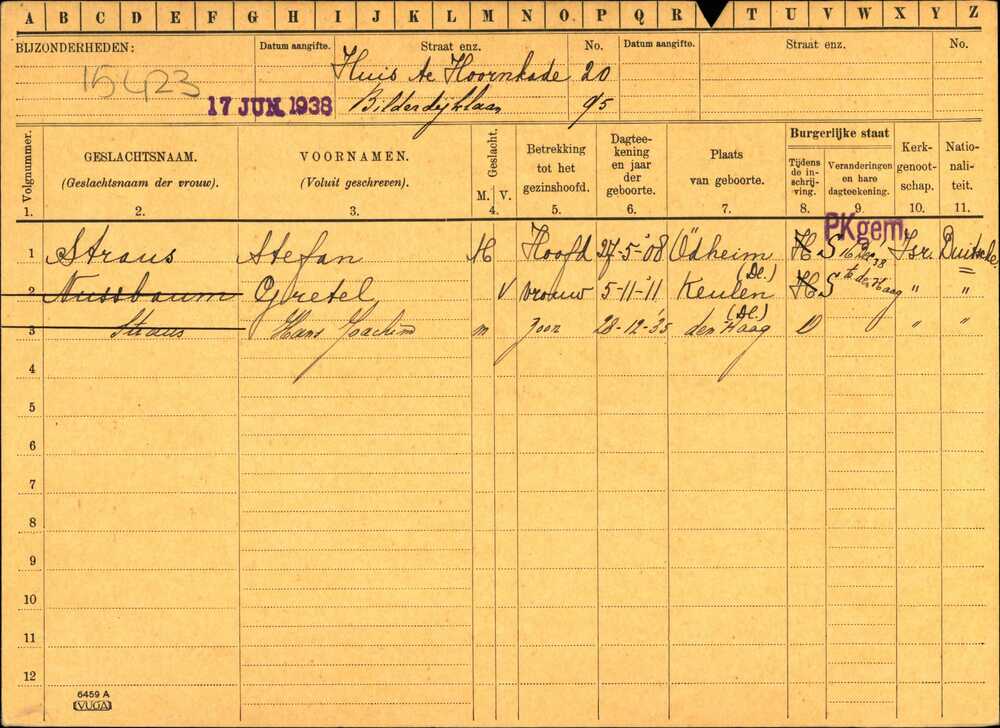 A B C D E F G H I J K L M N O P Q R T U V W X Y Z
BIJZONDERHEDEN: Datum aangifte. Straat enz. No. Datum aangifte. Straat enz. No.
15423 Huis te Hoornkade 20
17 JUN 1938 Bilderdijklaan 95
Volgnummer. GESLACHTSNAAM. (Geslachtsnaam der vrouw). VOORNAMEN. (Voluit geschreven). Geslacht. M. V. Betrekking tot het gezinshoofd. Dagteekening en jaar der geboorte. Plaats van geboorte. Burgerlijke staat Tijdens de inschrijving. Veranderingen en hare dagteekening. Kerkgenootschap. Nationaliteit.
1. 2. 3. 4. 5. 6. 7. 8. 9. 10. 11.
PKgem.
1 Straus Stefan M Hoofd 27-5-'08 Ödheim (Dl.) H S 16 Dec 38 Isr. Duitsche
2 Nussbaum Gretel V vrouw 5-11-'11 Keulen (Dl.) H S te den Haag " "
3 Straus Hans Joachim m zoon 28-12-'35 den Haag O " "
4
5
6
7
8
9
10
11
12
6459 A
VUGA